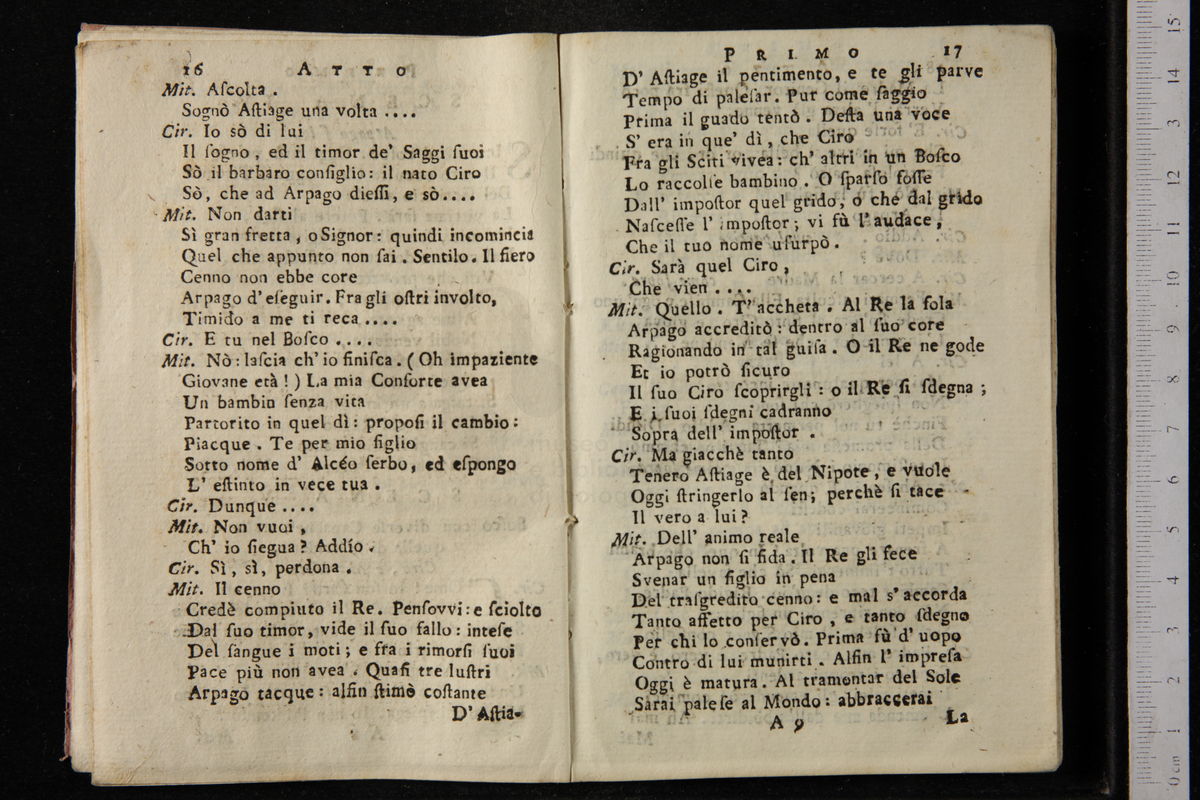 16 ATTO
Mit. Aſcolta .
Sognò Aſtiage una volta ....
Cir. Io sò di lui
Il ſogno , ed il timor de' Saggi ſuoi
Sò il barbaro conſiglio: il nato Ciro
Sò, che ad Arpago dieſſi, e sò....
Mit. Non darti
Sì gran fretta , o Signor: quindi incomincia
Quel che appunto non ſai . Sentilo. Il fiero
Cenno non ebbe core
Arpago d' eſeguir. Fra gli oſtri involto,
Timido a me ti reca ....
Cir. E tu nel Boſco ....
Mit. Nò: laſcia ch' io finiſca . ( Oh impaziente
Giovane età ! ) La mia Conſorte avea
Un bambin ſenza vita
Partorito in quel dì: propoſi il cambio:
Piacque . Te per mio figlio
Sotto nome d' Alcéo ſerbo, ed eſpongo
L' eſtinto in vece tua .
Cir. Dunque ....
Mit. Non vuoi ,
Ch' io ſiegua ? Addío .
Cir. Sì , sì, perdona .
Mit. Il cenno
Credè compiuto il Re. Penſovvi: e ſciolto
Dal ſuo timor, vide il ſuo fallo: inteſe
Del ſangue i moti; e fra i rimorſi ſuoi
Pace più non avea . Quaſi tre luſtri
Arpago tacque: alfin ſtimò coſtante
D' Aſtia-
PRIMO 17
D' Aſtiage il pentimento, e te gli parve
Tempo di paleſar. Pur come ſaggio
Prima il guado tentò . Deſta una voce
S' era in que' dì , che Ciro
Fra gli Sciti vivea: ch' altri in un Boſco
Lo raccolſe bambino . O ſparſo foſſe
Dall' impoſtor quel grido, o che dal grido
Naſceſſe l' impoſtor; vi fù l' audace,
Che il tuo nome uſurpò .
Cir. Sarà quel Ciro ,
Che vien ....
Mit. Quello . T' accheta . Al Re la fola
Arpago accreditò: dentro al ſuo core
Ragionando in tal guiſa . O il Re ne gode
Et io potrò ſicuro
Il ſuo Ciro ſcoprirgli : o il Re ſi ſdegna ;
E i ſuoi ſdegni cadranno
Sopra dell' impoſtor .
Cir. Ma giacchè tanto
Tenero Aſtiage è del Nipote , e vuole
Oggi ſtringerlo al ſen; perchè ſi tace
Il vero a lui ?
Mit. Dell' animo reale
Arpago non ſi fida . Il Re gli fece
Svenar un figlio in pena
Del traſgredito cenno: e mal s' accorda
Tanto affetto per Ciro , e tanto ſdegno
Per chi lo conſervò. Prima fù d' uopo
Contro di lui munirti . Alfin l' impreſa
Oggi è matura . Al tramontar del Sole
Sarai paleſe al Mondo: abbraccerai
A 9 La
0 cm 1 2 3 4 5 6 7 8 9 10 11 12 3 14 15